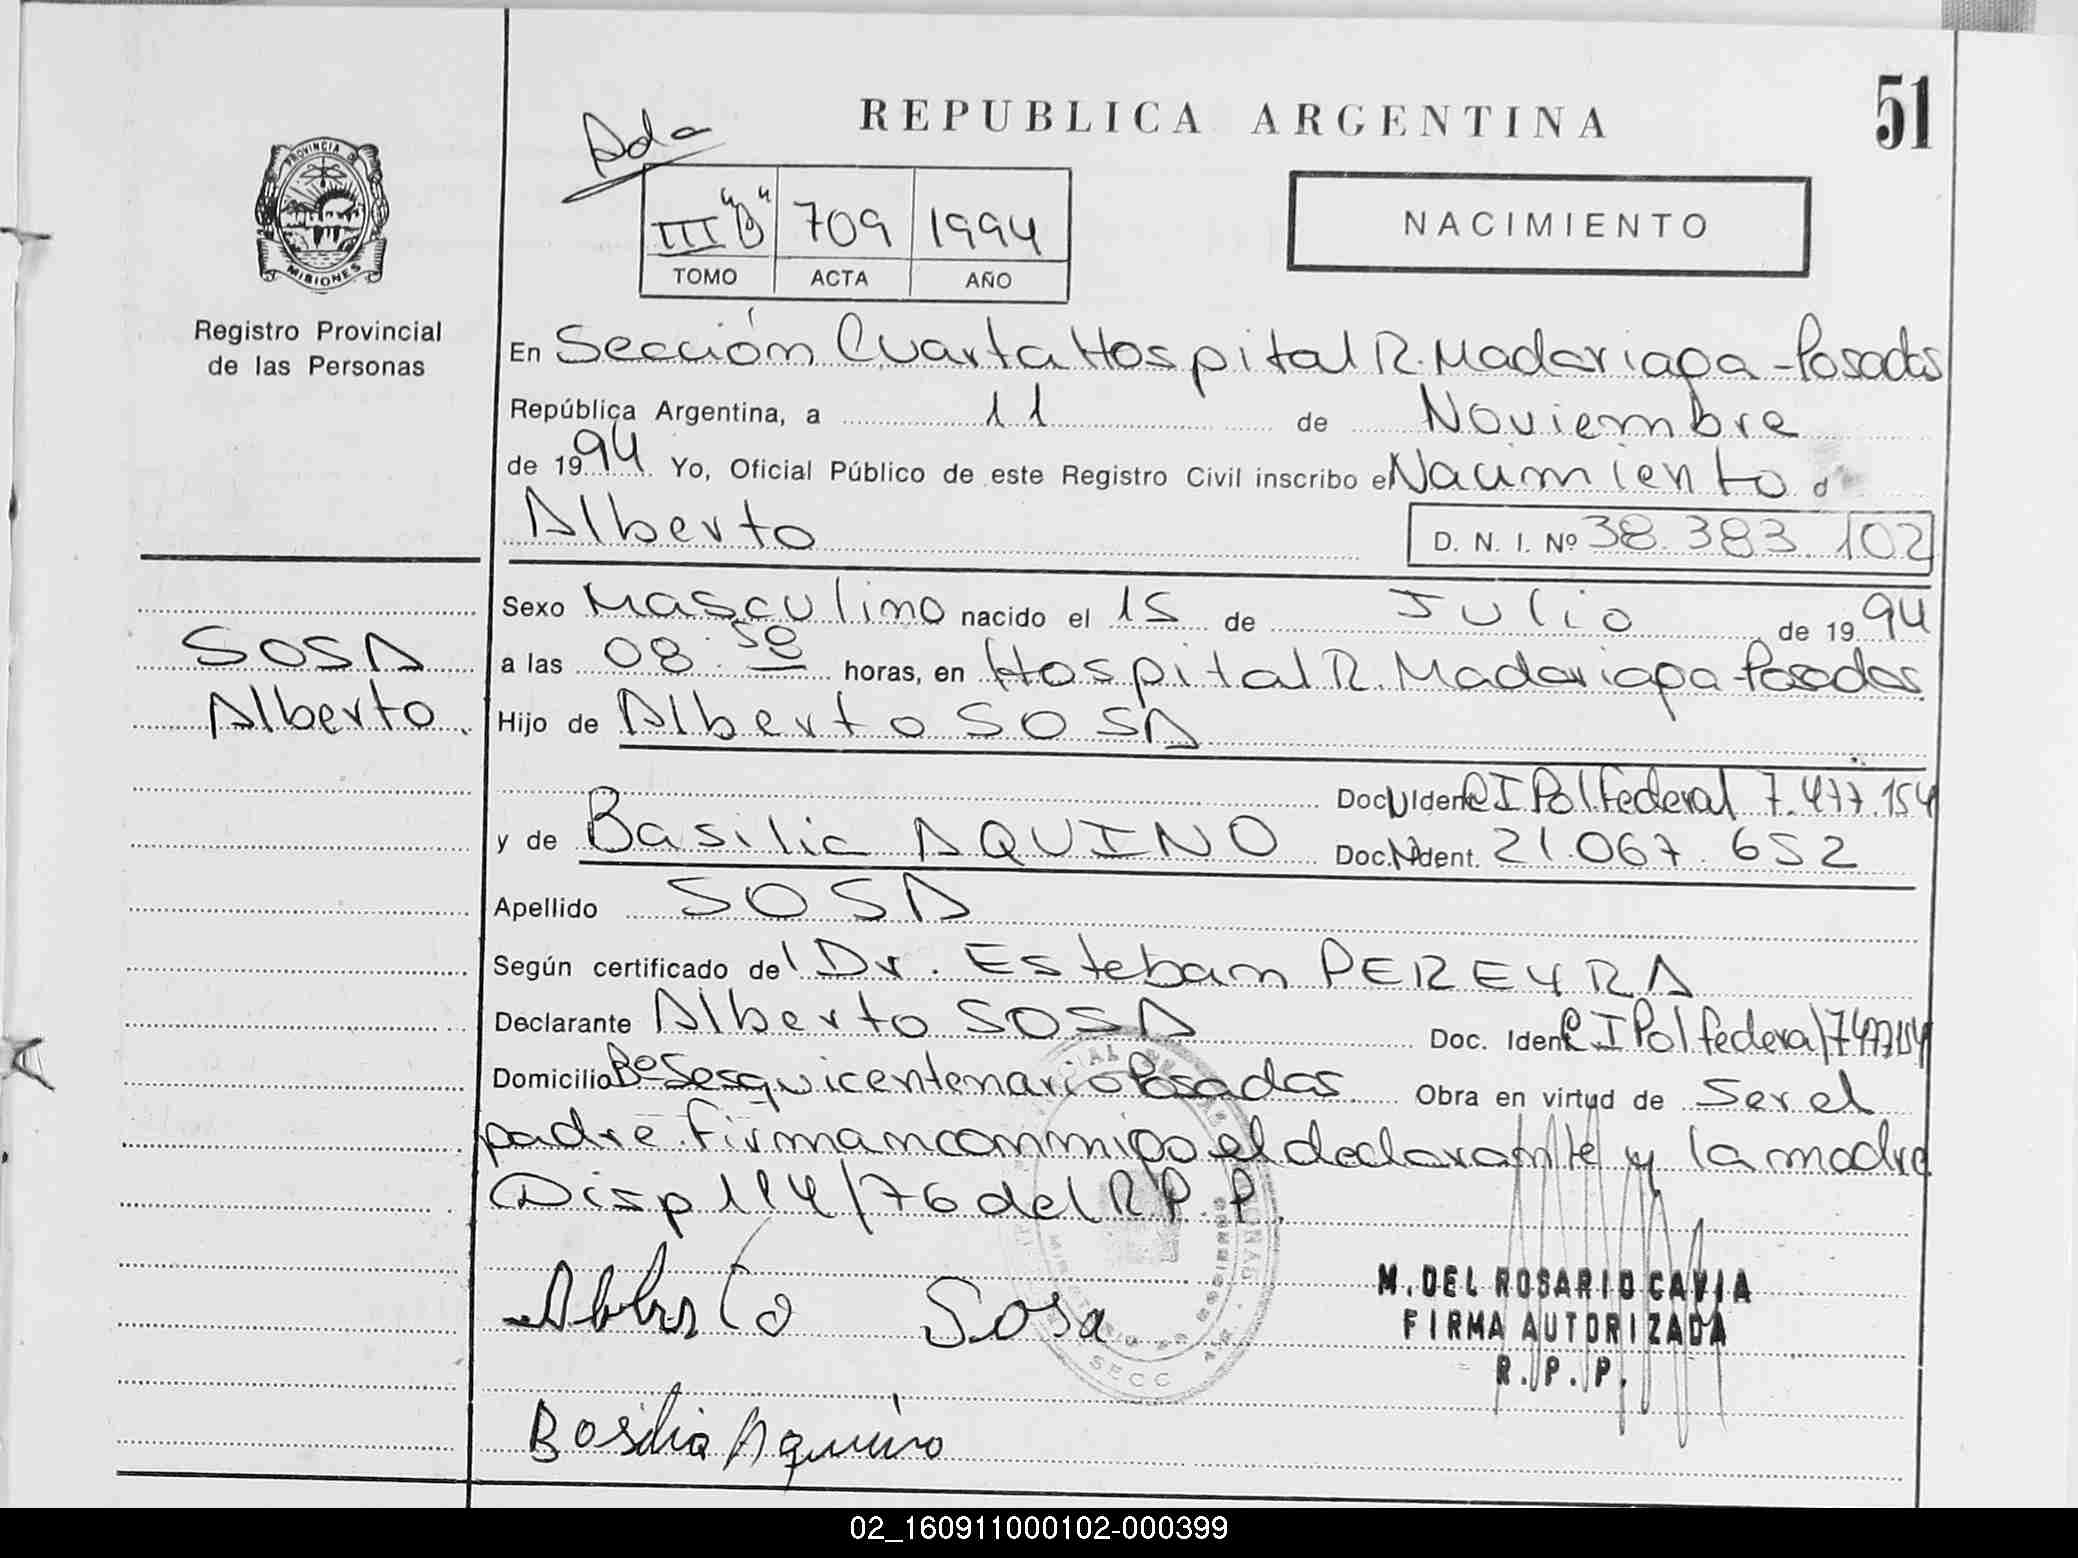 REPUBLICA ARGENTINA
51
Ada
III "D" 709 1994
TOMO ACTA AÑO
NACIMIENTO
PROVINCIA DE
MISIONES
Registro Provincial
de las Personas
En Sección Cuarta Hospital R. Madariaga - Posadas
República Argentina, a 11 de Noviembre
de 1994 Yo, Oficial Público de este Registro Civil inscribo el Nacimiento d
Alberto D. N. I. Nº 38.383.102
Sexo Masculino nacido el 15 de Julio de 1994
SOSA
a las 08:50 horas, en Hospital R. Madariaga - Posadas
Alberto
Hijo de Alberto SOSA
Doc. Ident. C I Pol Federal 7.477.154
y de Basilia AQUINO Doc. Ident. 21.067.652
Apellido SOSA
Según certificado del Dr. Esteban PEREYRA
Declarante Alberto SOSA Doc. Ident. C I Pol federal 7477154
Domicilio Bº Sesquicentenario Posadas Obra en virtud de Ser el
padre. Firman conmigo el declarante y la madre
Disp 114/76 del R.P.P.
Alberto Sosa
M. DEL ROSARIO CAVIA
FIRMA AUTORIZADA
R. P. P.
SECC
Basilia Aquino
02_160911000102-000399